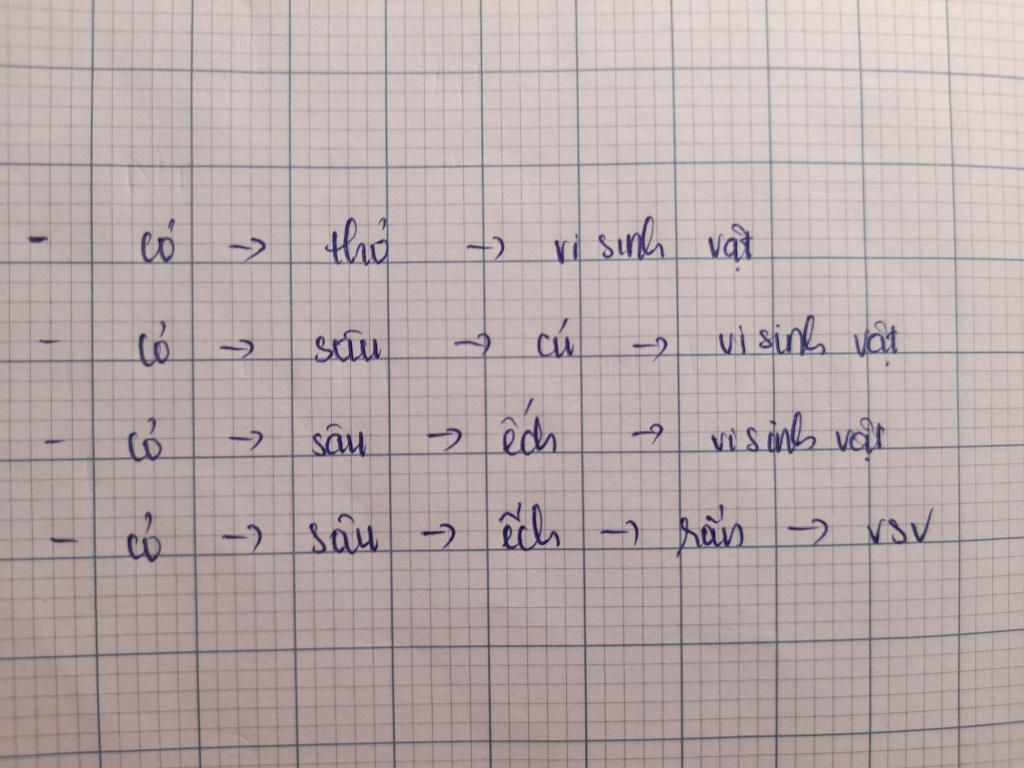 - cỏ → thỏ → vi sinh vật
- cỏ → sâu → cú → vi sinh vật
- cỏ → sâu → ếch → vi sinh vật
- cỏ → sâu → ếch → rắn → vsv